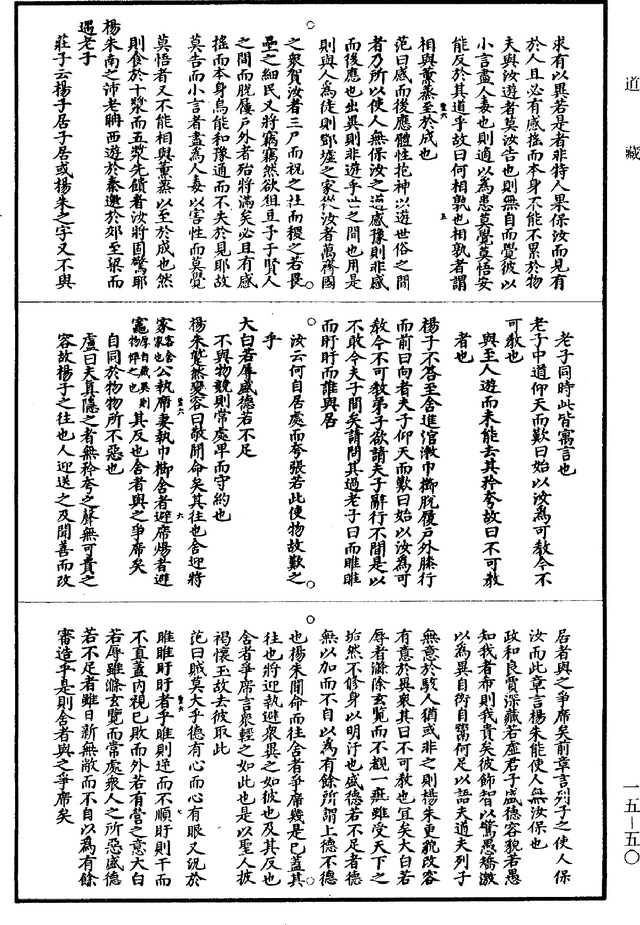 道藏
求有以異若是者非特人果保汝而見有
於人且必有感搖而本身不能不累於物
夫與汝遊者莫汝告也則無自而覺彼以
小言盡人毒也則適以為患莫覺莫悟安
能反於其道乎故曰何相孰也相孰者謂
相與薰蒸至於成也
范曰感而後應體性抱神以遊世俗之間
者乃所以使人無保汝之道感豫則非感
而後應也出異則非遊乎世之間也用是
則與人為徒則鄧墟之家從汝者萬齊國
之衆賀汝者三尸而祝之社而稷之若畏
壘之細民又將竊竊然欲俎豆予于賢人
之間而脫屨戶外者殆將滿矣必且有感
搖而本身烏能和豫通而不失於兌耶故
莫告而小言者盡為人毒以害性而莫覺
莫悟者又不能相與薰蒸以至於成也然
則食於十漿而五漿先饋者汝將固驚耶
楊朱南之沛老聃西遊於秦邀於郊至梁而
遇老子
莊子云楊子居子居或楊朱之字又不與
老子同時此皆寓言也
老子中道仰天而歎曰始以汝為可教今不
可教也
與至人遊而未能去其矜夸故曰不可教
者也
楊子不荅至舍進涫漱巾櫛脫屨戶外膝行
而前曰向者夫子仰天而歎曰始以汝為可
教今不可教弟子欲請夫子辭行不間是以
不敢今夫子間矣請問其過老子曰而睢睢
而盱盱而誰與居
汝云何自居處而夸張若此使物故歎之
乎
大白若辱盛德若不足
不與物競則常處卑而守約也
楊朱蹵然變容曰敬聞命矣其往也舍迎將
家公執席妻執巾櫛舍者避席煬者避
竈其反也舍者與之爭席矣
自同於物物所不惡也
盧曰夫真隱之者無矜夸之聲無可貴之
容故楊子之往也人迎送之及聞善而改
居者與之爭席矣前章言列子之使人保
汝而此章言楊朱能使人無汝保也
政和良賈深藏若虛君子盛德容貌若愚
知我者希則我貴矣彼飾智以驚愚矯激
以為異自衒自鬻何足以語夫道夫列子
無意於駭人猶或非之則楊朱更貌改容
有意於異衆其曰不可教也宜矣大白若
辱者滌除玄覽而不覩一疵雖受天下之
垢然不修身以明汙也盛德若不足者德
無以加而不自以為有餘所謂上德不德
也楊朱聞命而往舍者爭席幾是已蓋其
往也將迎執避衆異之如彼也及其反也
舍者爭席言衆輕之如此也是以聖人披
褐懷玉故去彼取此
范曰賊莫大乎德有心而心有眼又況於
睢睢盱盱者乎睢則逆而不順盱則千而
不直蓋內視已敗而外若有當之意大白
若辱雖滌玄覽而常處衆人之所惡盛德
若不足者雖日新無敝而不自以為有餘
審造乎是則舍者與之爭席矣
一五—五〇